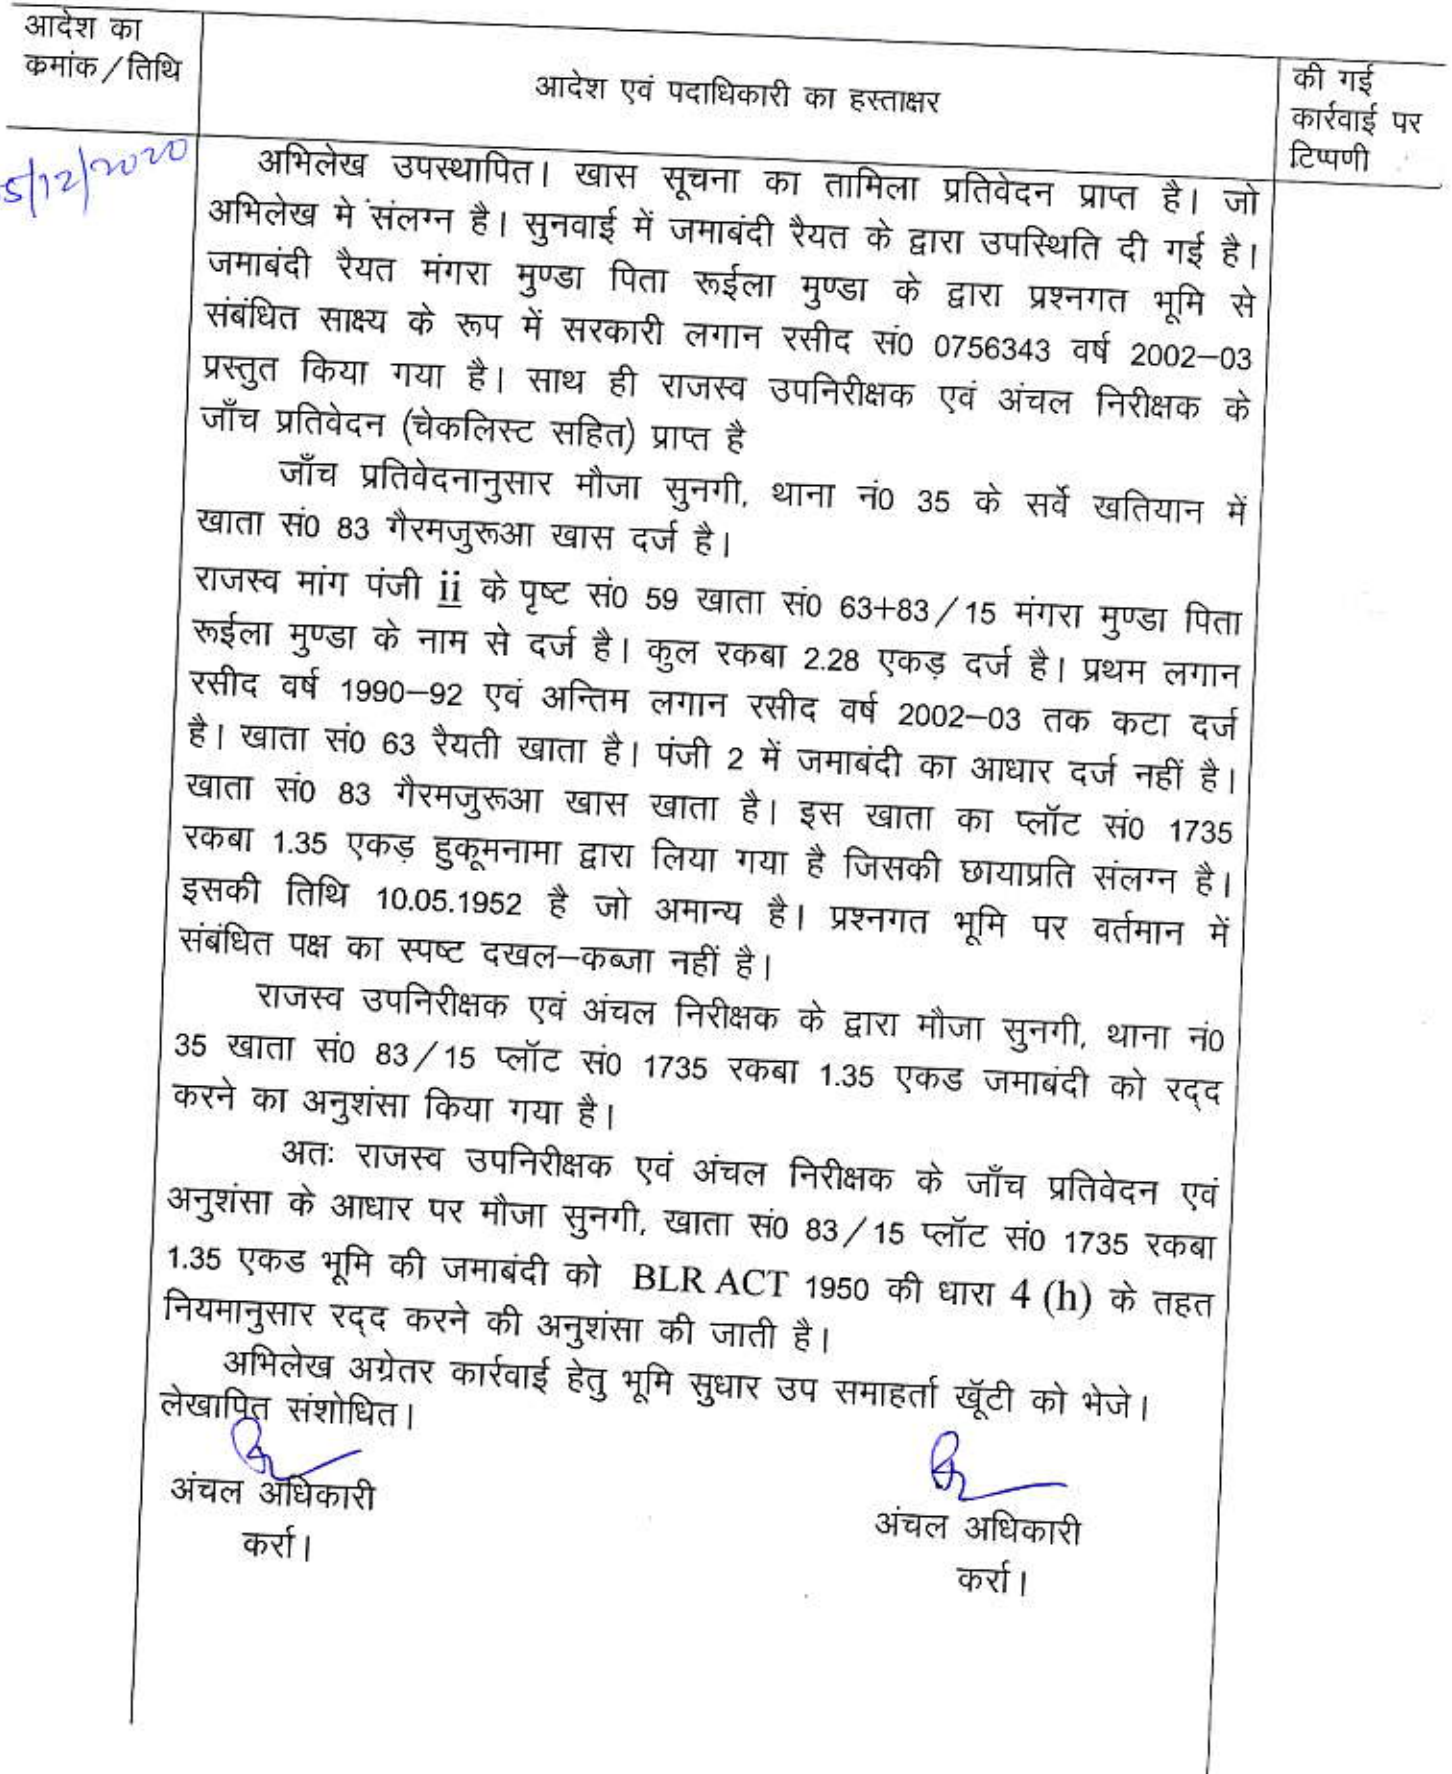 आदेश का
कमांक/तिथि
आदेश एवं पदाधिकारी का हस्ताक्षर
की गई
कार्रवाई पर
टिप्पणी
5/12/2020
अभिलेख उपस्थापित। खास सूचना का तामिला प्रतिवेदन प्राप्त है। जो
अभिलेख मे संलग्न है। सुनवाई में जमाबंदी रैयत के द्वारा उपस्थिति दी गई है।
जमाबंदी रैयत मंगरा मुण्डा पिता रूईला मुण्डा के द्वारा प्रश्नगत भूमि से
संबंधित साक्ष्य के रूप में सरकारी लगान रसीद सं0 0756343 वर्ष 2002–03
प्रस्तुत किया गया है। साथ ही राजस्व उपनिरीक्षक एवं अंचल निरीक्षक के
जाँच प्रतिवेदन (चेकलिस्ट सहित) प्राप्त है
जाँच प्रतिवेदनानुसार मौजा सुनगी, थाना नं0 35 के सर्वे खतियान में
खाता सं0 83 गैरमजुरूआ खास दर्ज है।
राजस्व मांग पंजी ii के पृष्ट सं0 59 खाता सं0 63+83/15 मंगरा मुण्डा पिता
रूईला मुण्डा के नाम से दर्ज है। कुल रकबा 2.28 एकड़ दर्ज है। प्रथम लगान
रसीद वर्ष 1990–92 एवं अन्तिम लगान रसीद वर्ष 2002–03 तक कटा दर्ज
है। खाता सं0 63 रैयती खाता है। पंजी 2 में जमाबंदी का आधार दर्ज नहीं है।
खाता सं0 83 गैरमजुरूआ खास खाता है। इस खाता का प्लॉट सं0 1735
रकबा 1.35 एकड़ हुकूमनामा द्वारा लिया गया है जिसकी छायाप्रति संलग्न है।
इसकी तिथि 10.05.1952 है जो अमान्य है। प्रश्नगत भूमि पर वर्तमान में
संबंधित पक्ष का स्पष्ट दखल–कब्जा नहीं है।
राजस्व उपनिरीक्षक एवं अंचल निरीक्षक के द्वारा मौजा सुनगी, थाना नं0
35 खाता सं0 83/15 प्लॉट सं0 1735 रकबा 1.35 एकड जमाबंदी को रद्द
करने का अनुशंसा किया गया है।
अतः राजस्व उपनिरीक्षक एवं अंचल निरीक्षक के जाँच प्रतिवेदन एवं
अनुशंसा के आधार पर मौजा सुनगी, खाता सं0 83/15 प्लॉट सं0 1735 रकबा
1.35 एकड भूमि की जमाबंदी को BLR ACT 1950 की धारा 4 (h) के तहत
नियमानुसार रद्द करने की अनुशंसा की जाती है।
अभिलेख अग्रेतर कार्रवाई हेतु भूमि सुधार उप समाहर्ता खूँटी को भेजे।
लेखापित संशोधित।
अंचल अधिकारी
कर्रा।
अंचल अधिकारी
कर्रा।